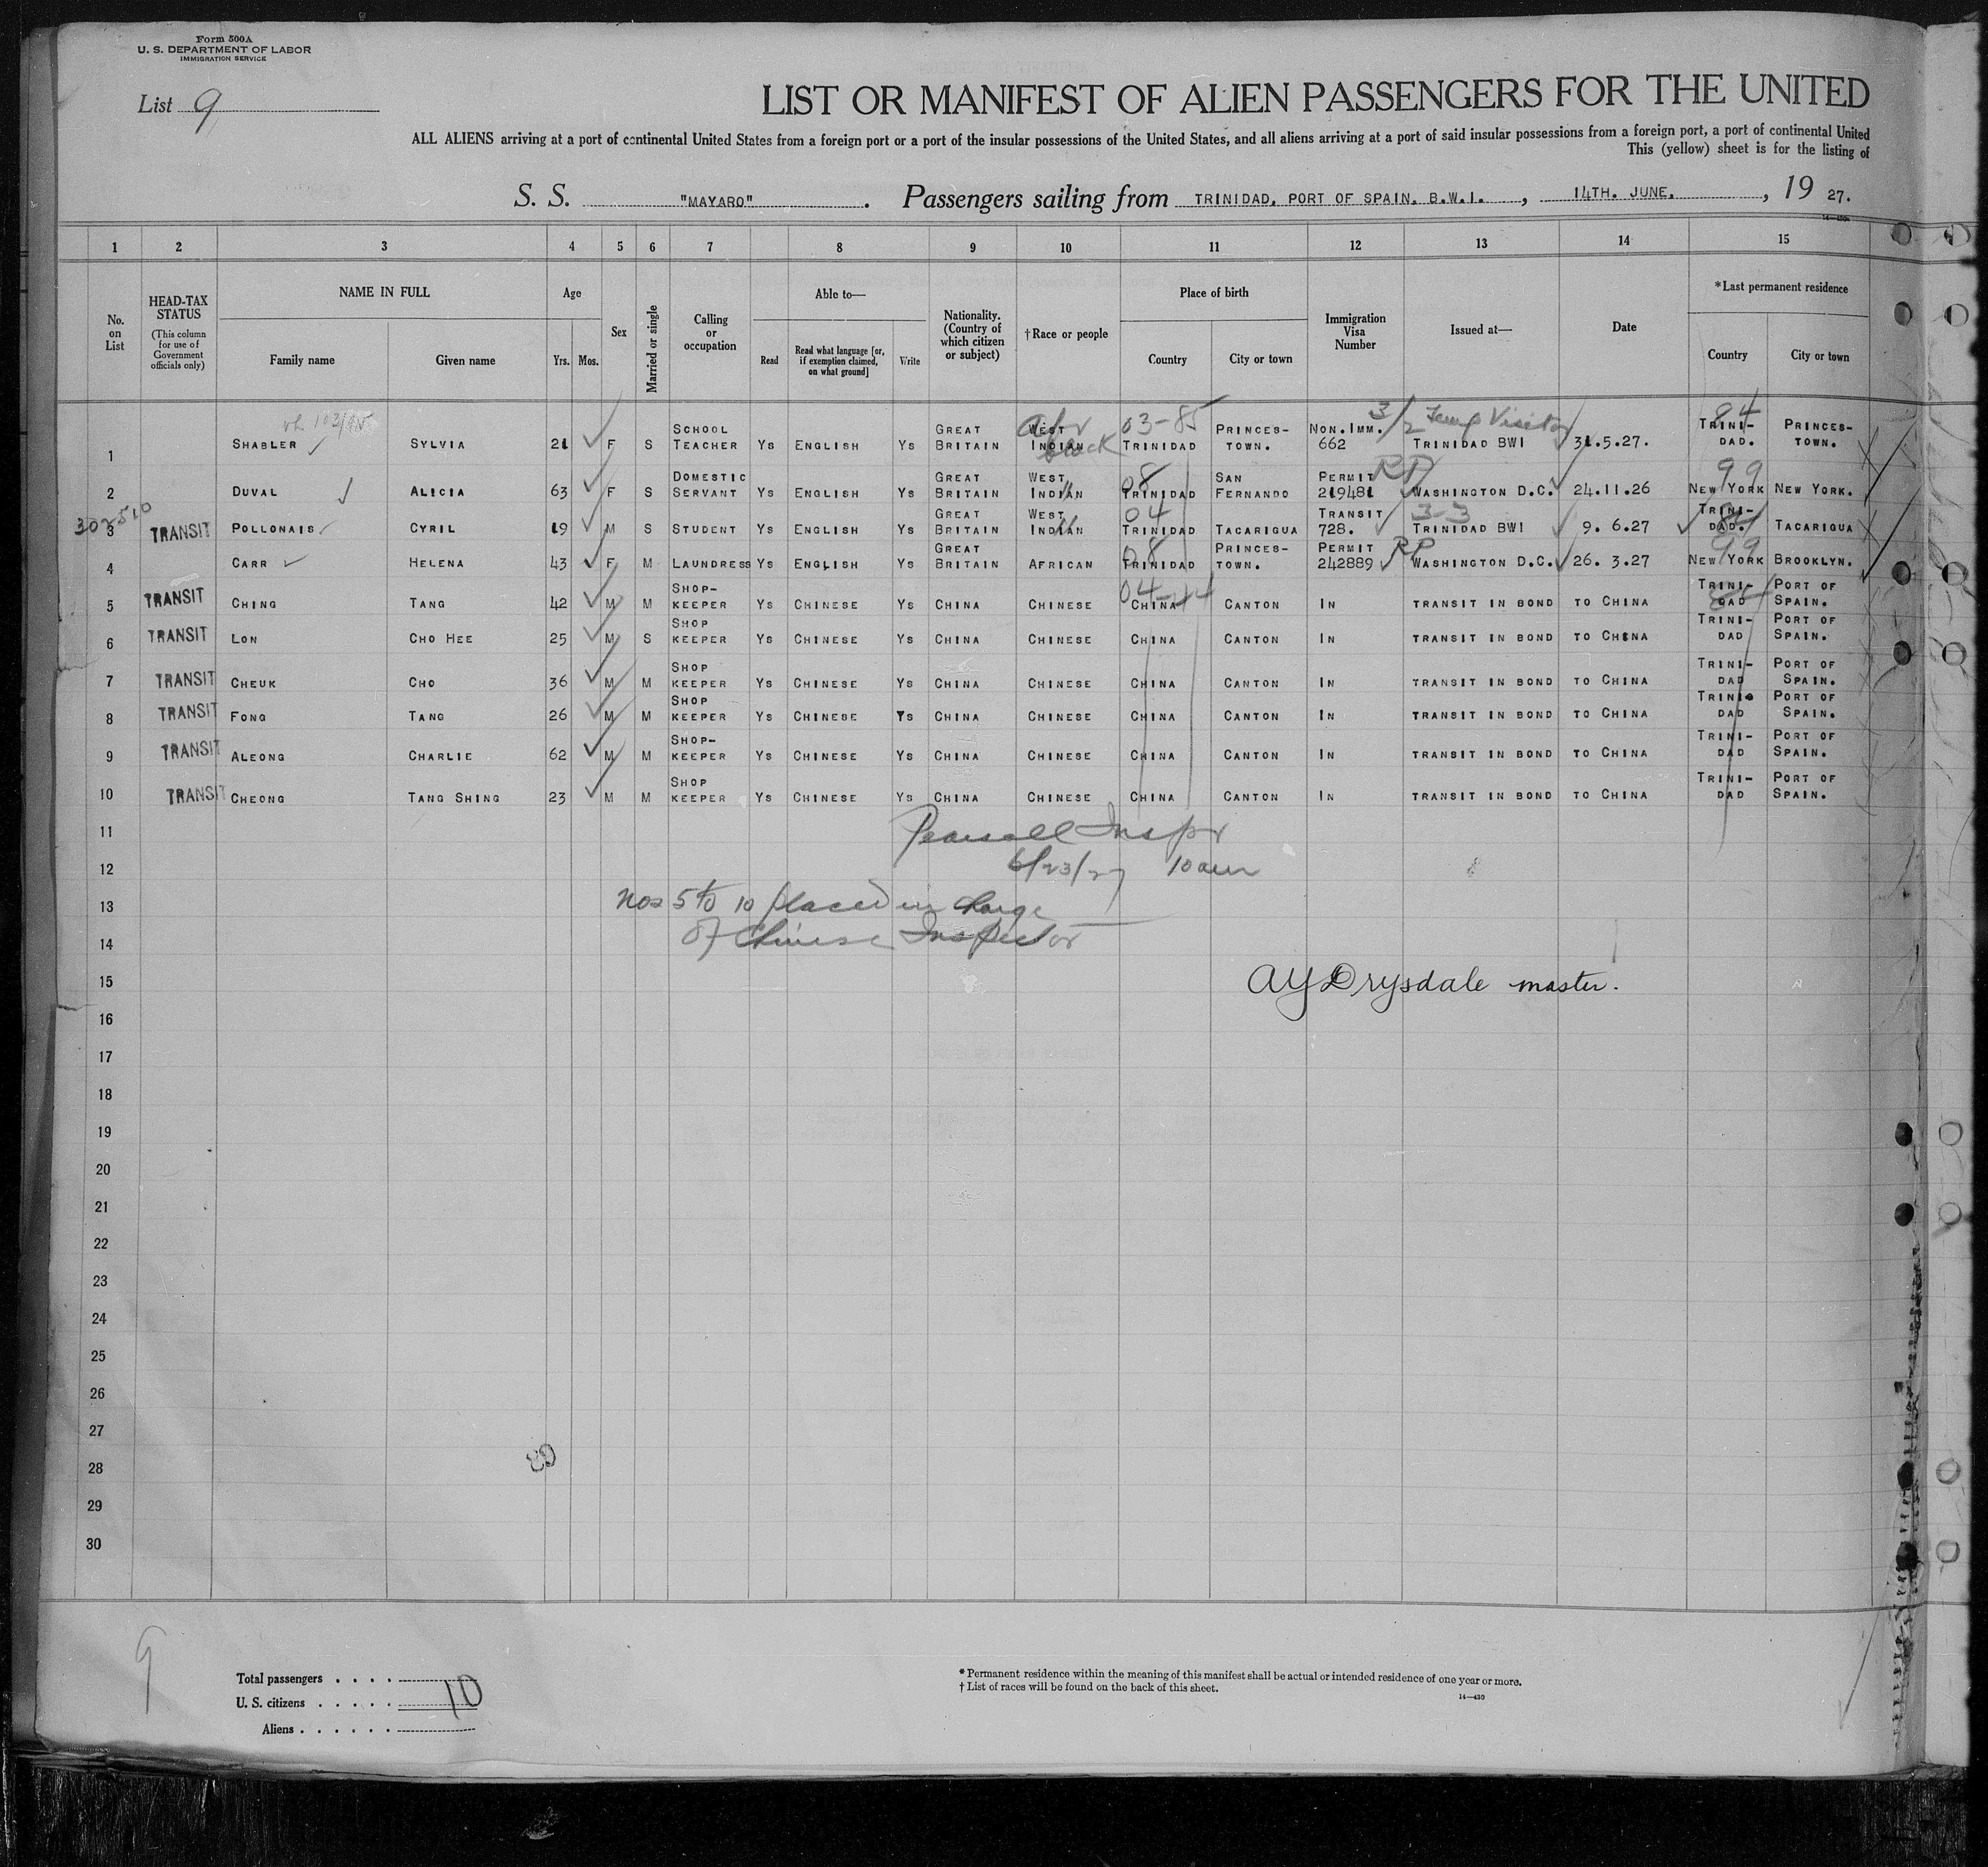 Form 500A
U. S. DEPARTMENT OF LABOR
IMMIGRATION SERVICE
List 9
LIST OR MANIFEST OF ALIEN PASSENGERS FOR THE UNITED
ALL ALIENS arriving at a port of continental United States from a foreign port or a port of the insular possessions of the United States, and all aliens arriving at a port of said insular possessions from a foreign port, a port of continental United
This (yellow) sheet is for the listing of
S. S. "MAYARO". Passengers sailing from TRINIDAD, PORT OF SPAIN, B.W.I., 14TH. JUNE., 19 27.
14—430
1 2 3 4 5 6 7 8 9 10 11 12 13 14 15
No. on List
HEAD-TAX STATUS
(This column for use of Government officials only)
NAME IN FULL
Family name Given name
Age
Yrs. Mos.
Sex
Married or single
Calling or occupation
Able to—
Read
Read what language [or, if exemption claimed, on what ground]
Write
Nationality. (Country of which citizen or subject)
†Race or people
Place of birth
Country City or town
Immigration Visa Number
Issued at—
Date
*Last permanent residence
Country City or town
03-85 3/2 Temp Visitor 84
1 SHABLER SYLVIA 21 F S SCHOOL TEACHER YS ENGLISH YS GREAT BRITAIN WEST INDIAN black TRINIDAD PRINCES-TOWN. NON.IMM. 662 TRINIDAD BWI 31.5.27. TRINI-DAD. PRINCES-TOWN.
08 RP 99
2 DUVAL ALICIA 63 F S DOMESTIC SERVANT YS ENGLISH YS GREAT BRITAIN WEST INDIAN TRINIDAD SAN FERNANDO PERMIT 219481 WASHINGTON D.C. 24.11.26 NEW YORK NEW YORK.
302510 04 3-3
3 TRANSIT POLLONAIS CYRIL 19 M S STUDENT YS ENGLISH YS GREAT BRITAIN WEST INDIAN TRINIDAD TACARIGUA TRANSIT 728. TRINIDAD BWI 9. 6.27 TRINI-DAD. TACARIGUA
08 RP 99
4 CARR HELENA 43 F M LAUNDRESS YS ENGLISH YS GREAT BRITAIN AFRICAN TRINIDAD PRINCES-TOWN. PERMIT 242889 WASHINGTON D.C. 26. 3.27 NEW YORK BROOKLYN.
04-44
5 TRANSIT CHING TANG 42 M M SHOP-KEEPER YS CHINESE YS CHINA CHINESE CHINA CANTON IN TRANSIT IN BOND TO CHINA TRINI-DAD PORT OF SPAIN.
6 TRANSIT LON CHO HEE 25 M S SHOP KEEPER YS CHINESE YS CHINA CHINESE CHINA CANTON IN TRANSIT IN BOND TO CHINA TRINI-DAD PORT OF SPAIN.
7 TRANSIT CHEUK CHO 36 M M SHOP KEEPER YS CHINESE YS CHINA CHINESE CHINA CANTON IN TRANSIT IN BOND TO CHINA TRINI-DAD PORT OF SPAIN.
8 TRANSIT FONG TANG 26 M M SHOP KEEPER YS CHINESE YS CHINA CHINESE CHINA CANTON IN TRANSIT IN BOND TO CHINA TRINI-DAD PORT OF SPAIN.
9 TRANSIT ALEONG CHARLIE 62 M M SHOP-KEEPER YS CHINESE YS CHINA CHINESE CHINA CANTON IN TRANSIT IN BOND TO CHINA TRINI-DAD PORT OF SPAIN.
10 TRANSIT CHEONG TANG SHING 23 M M SHOP KEEPER YS CHINESE YS CHINA CHINESE CHINA CANTON IN TRANSIT IN BOND TO CHINA TRINI-DAD PORT OF SPAIN.
11 Pearsall Inspr
12 6/23/27 10 am
13 Nos 5 to 10 placed in charge
14 of Chinese Inspector
15 AY Drysdale master.
16
17
18
19
20
21
22
23
24
25
26
27
28
29
30
9
Total passengers . . . .
U. S. citizens . . . . . 10
Aliens . . . . . .
* Permanent residence within the meaning of this manifest shall be actual or intended residence of one year or more.
† List of races will be found on the back of this sheet.
14—430